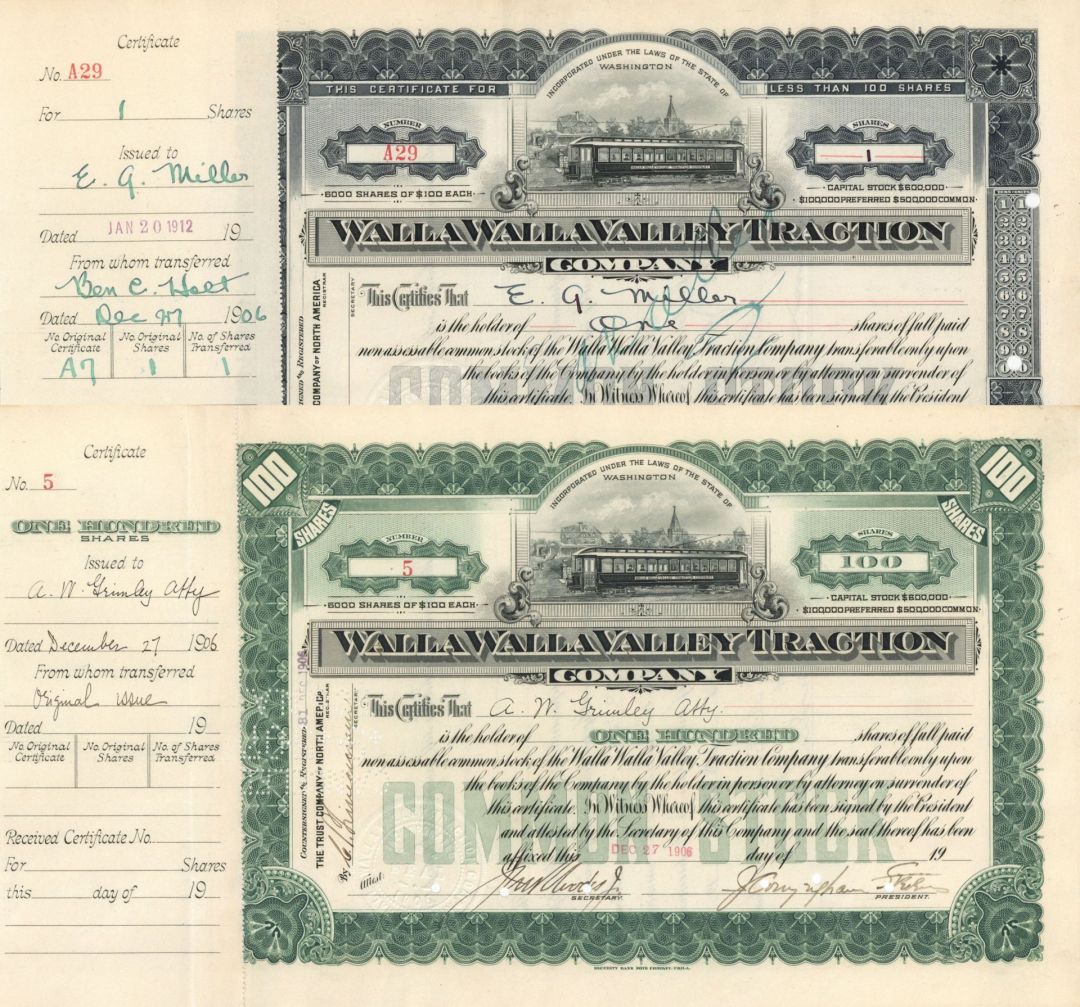 Certificate
No. A29
For 1 Shares
Issued to
E. G. Miller
Dated JAN 20 1912 19
From whom transferred
Ben C. Holt
Dated Dec 27 1906
No. Original Certificate
No. Original Shares
No. of Shares Transferred
A7 1 1
INCORPORATED UNDER THE LAWS OF THE STATE OF
WASHINGTON
THIS CERTIFICATE FOR LESS THAN 100 SHARES
NUMBER
A29
SHARES
1
6000 SHARES OF $100 EACH
CAPITAL STOCK $600,000
$100,000 PREFERRED $500,000 COMMON
WALLA WALLA VALLEY TRACTION
COMPANY
This Certifies That E. G. Miller
is the holder of One shares of full paid
non assessable common stock of the Walla Walla Valley Traction Company transferable only upon
the books of the Company by the holder in person or by attorney on surrender of
this certificate. In Witness Whereof this certificate has been signed by the President
COMMON STOCK
REGISTERED
COMPANY OF NORTH AMERICA
REGISTRAR
SECRETARY
1 1
2 2
3 3
4 4
5 5
6 6
7 7
8 8
9 9
0 0
Certificate
No. 5
ONE HUNDRED
SHARES
Issued to
A. W. Grimley Atty
Dated December 27 1906
From whom transferred
Original issue
Dated 19
No. Original Certificate
No. Original Shares
No. of Shares Transferred
Received Certificate No.
For Shares
this day of 19
100
SHARES
100
SHARES
INCORPORATED UNDER THE LAWS OF THE STATE OF
WASHINGTON
NUMBER
5
SHARES
100
6000 SHARES OF $100 EACH
CAPITAL STOCK $600,000
$100,000 PREFERRED $500,000 COMMON
WALLA WALLA VALLEY TRACTION
COMPANY
This Certifies That A. W. Grimley Atty.
is the holder of ONE HUNDRED shares of full paid
non assessable common stock of the Walla Walla Valley Traction Company transferable only upon
the books of the Company by the holder in person or by attorney on surrender of
this certificate. In Witness Whereof this certificate has been signed by the President
and attested by the Secretary of this Company and the seal thereof has been
affixed this DEC 27 1906 day of 19
COMMON STOCK
Attest:
SECRETARY.
PRESIDENT.
COUNTERSIGNED AND REGISTERED
THE TRUST COMPANY OF NORTH AMERICA
REGISTRAR
By
SECRETARY
100
100
SECURITY BANK NOTE COMPANY, PHILA.